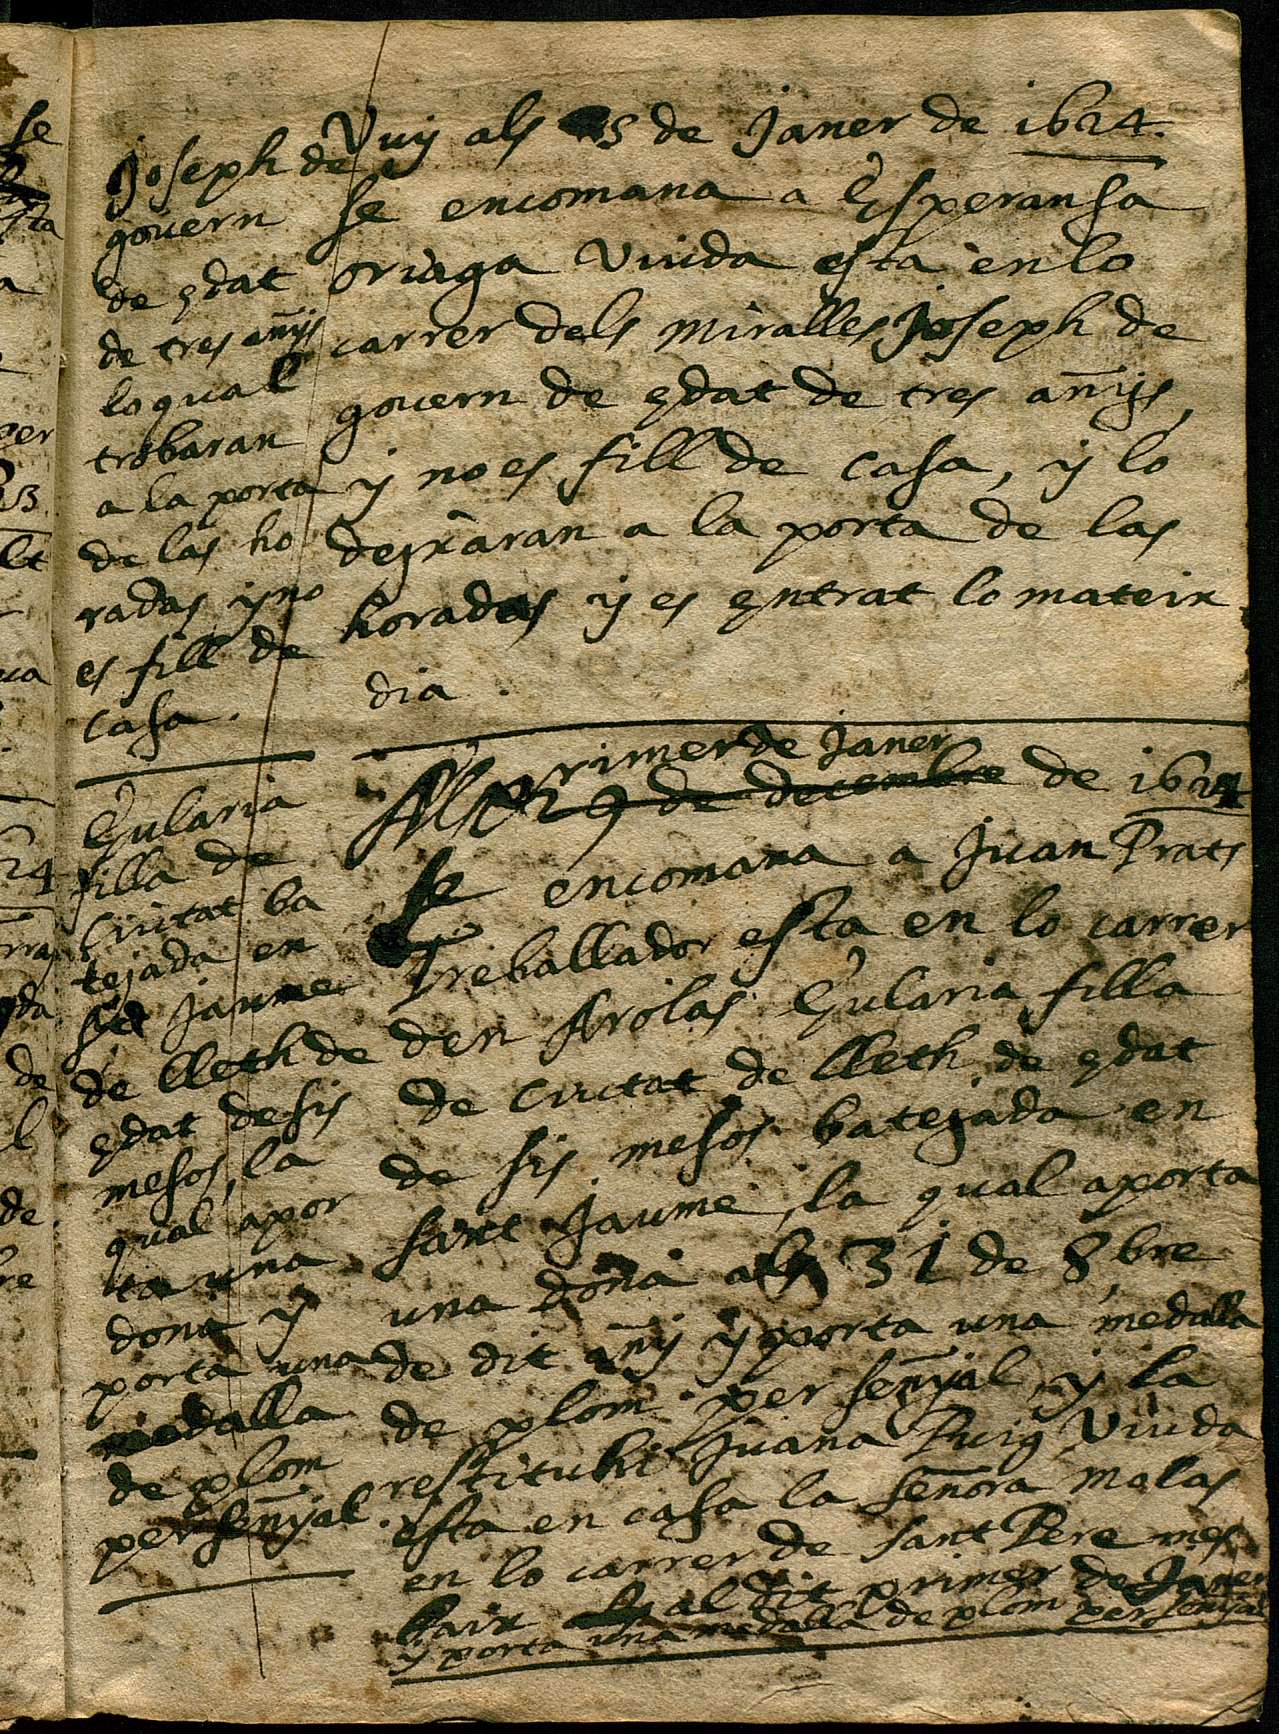 Joseph de
govern
de edat
de tres añys
lo qual
trobaran
a la porta
de las ho
radas y no
es fill de
casa.
Vuy als 5 de Janer de 1624.
se encomana a Esperansa
oriaga viuda esta en lo
carrer dels miralles Joseph de
govern de edat de tres añys,
y no es fill de casa, y lo
dexaran a la porta de las
horadas y es entrat lo mateix
dia.
Eularia
filla de
Ciutat ba
tejada en
St Jaume
de lleth de
edat de sis
mesos, la
qual apor
ta una
dona y
porta una
medalla
de plom
per señyal.
primer de Janer
Als 29 de decembre de 1624
se encomana a Juan Prats
Treballador esta en lo carrer
den Arolas Eularia filla
de Ciutat de lleth de edat
de sis mesos batejada en
sant Jaume, la qual aporta
una dona als 31 de 8bre
de dit añy y porta una medalla
de plom per señyal, y la
restituhi Juana Puig Viuda
esta en casa la señora molas
en lo carrer de sant Pere mes
baix al dit primer de Janer
y porta una medalla de plom per señyal